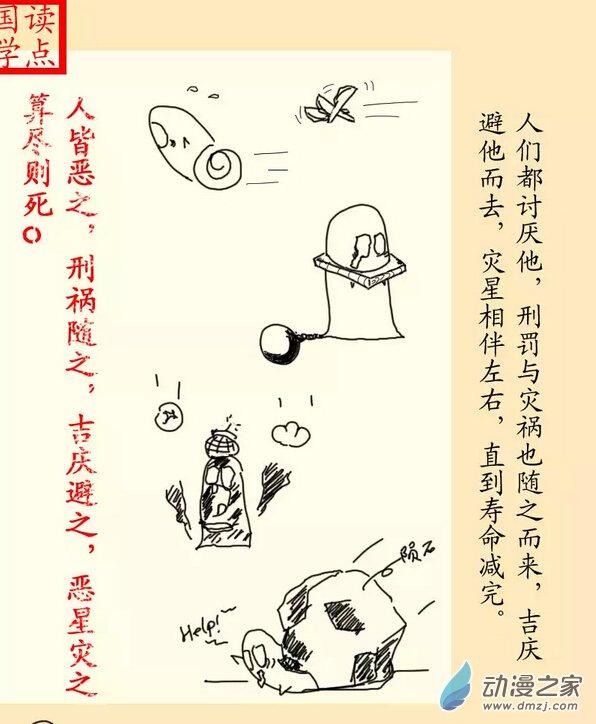 读点
国学
人们都讨厌他，刑罚与灾祸也随之而来，吉庆
避他而去，灾星相伴左右，直到寿命减完。
陨石
Help!~
人皆恶之，刑祸随之，吉庆避之，恶星灾之
算尽则死。
动漫之家
www.dmzj.com